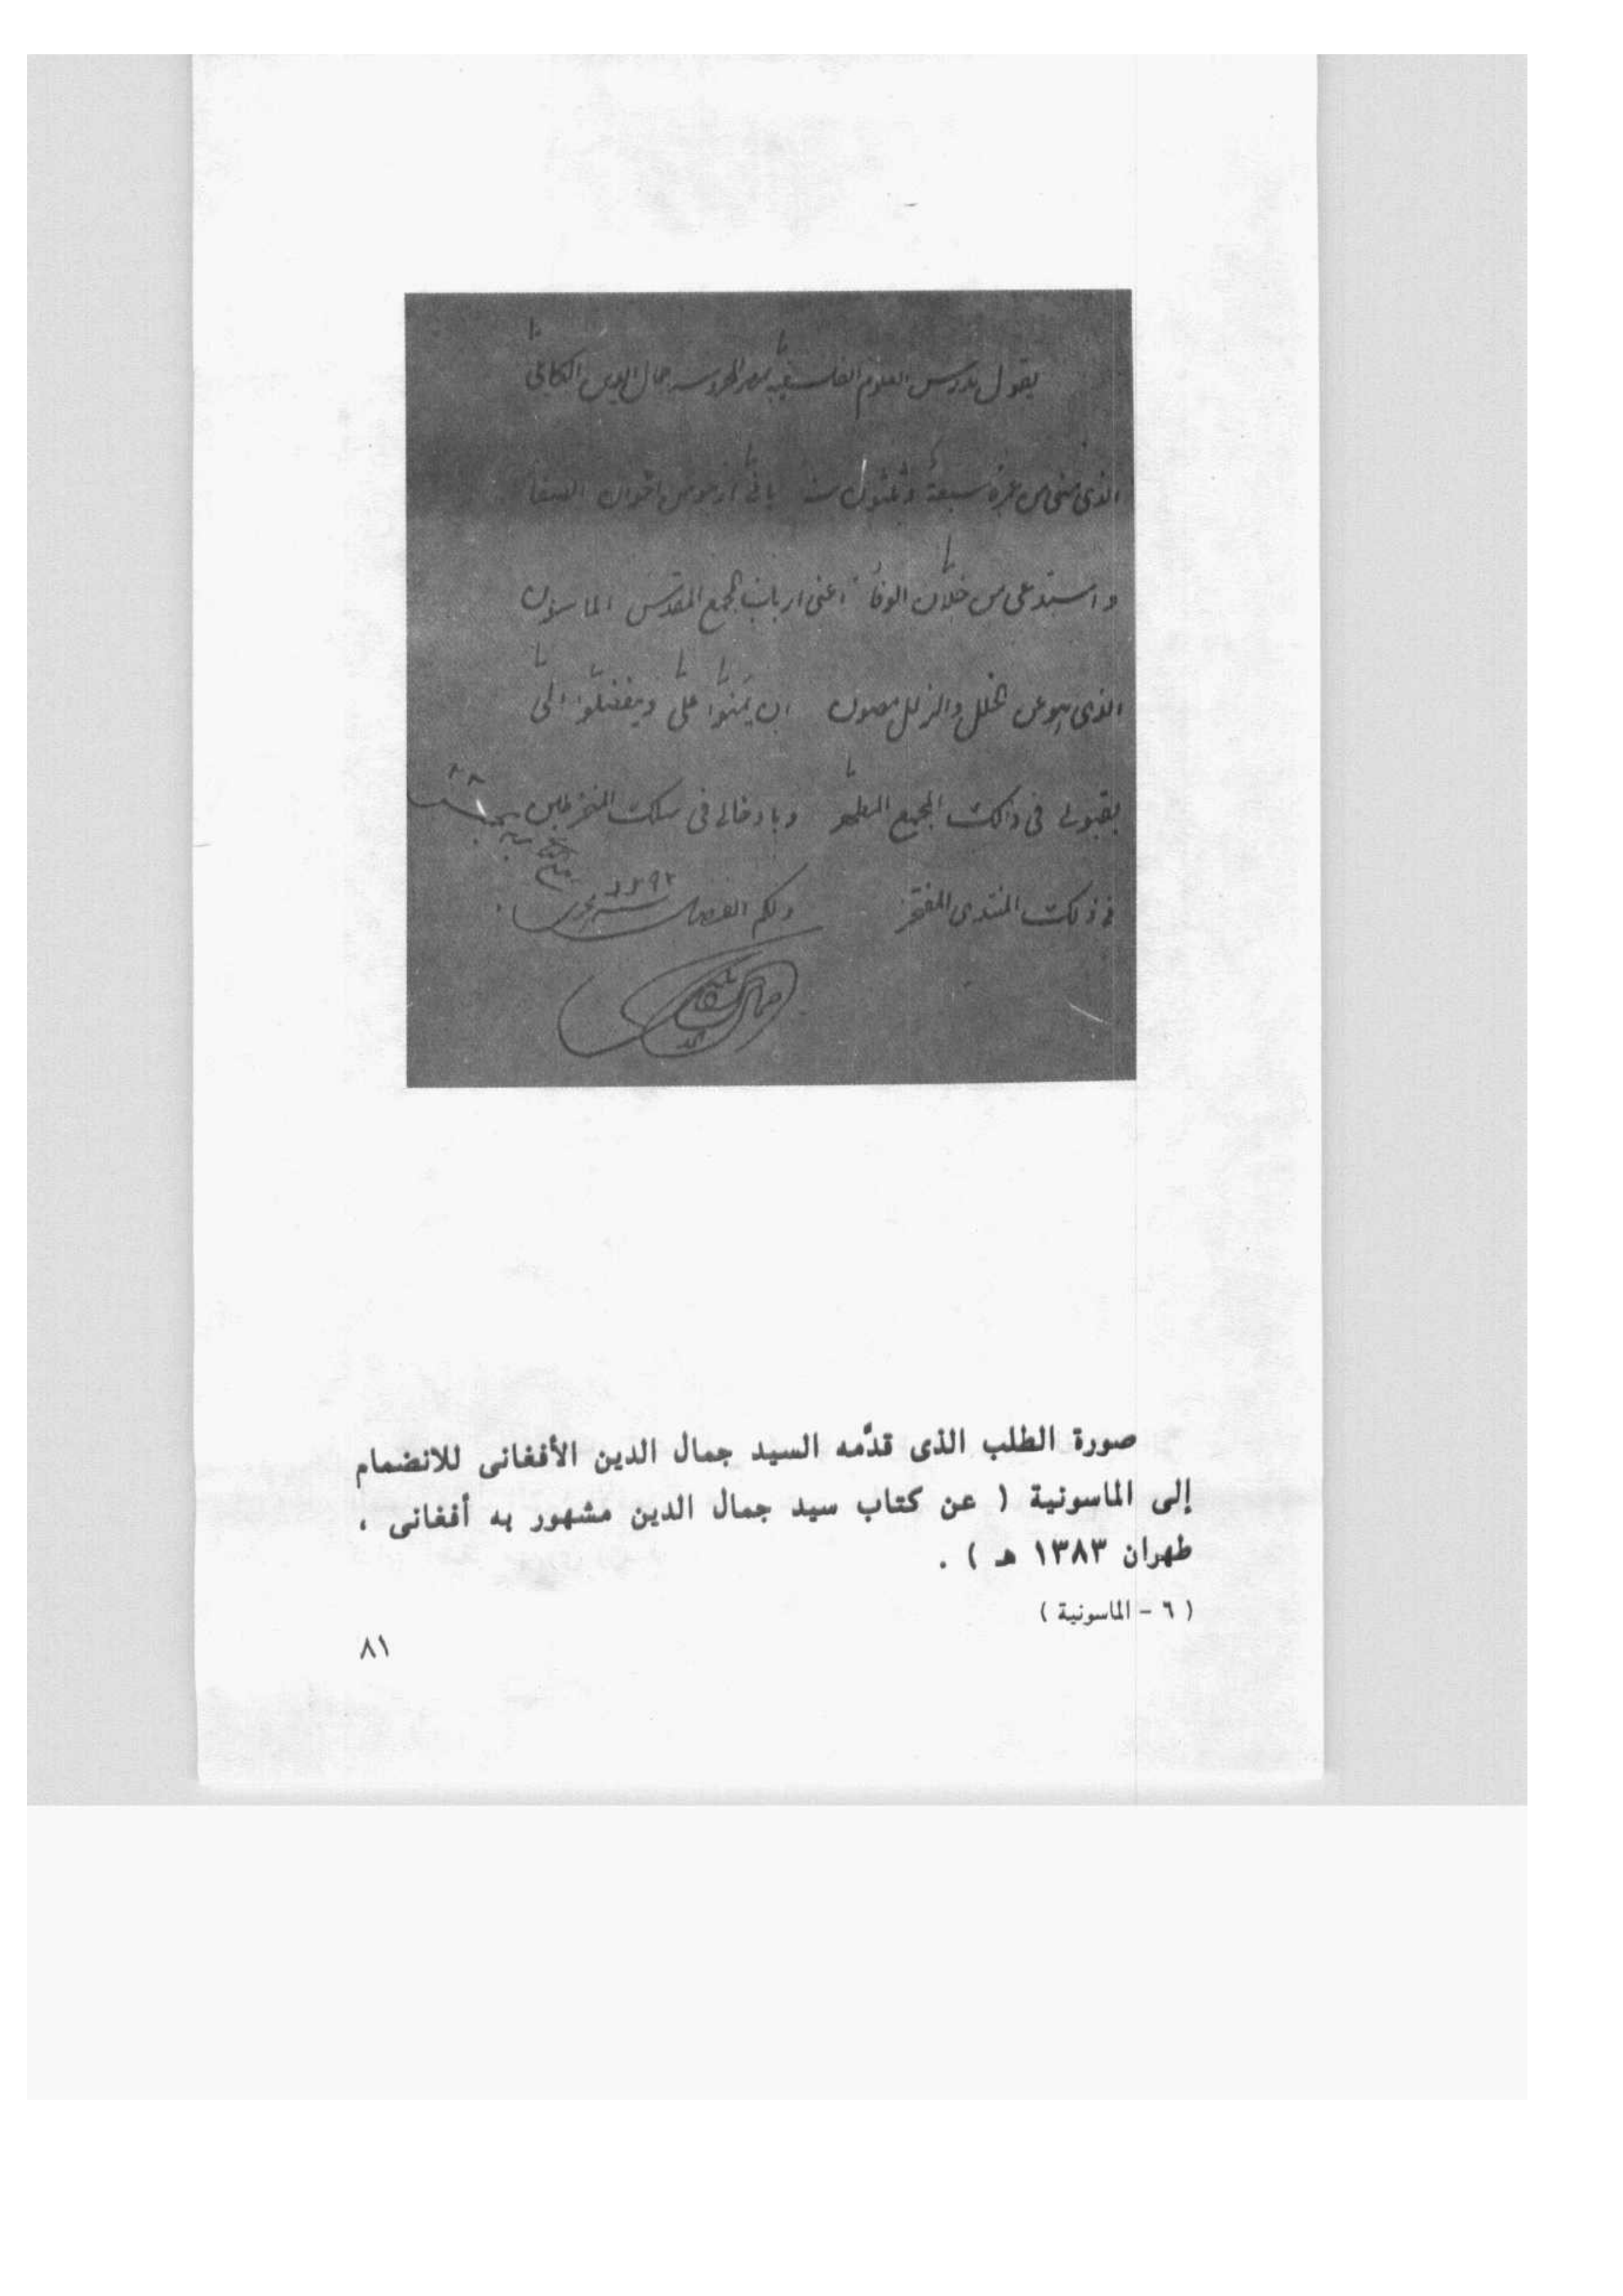 يقول مدرس العلوم الفلسفية بمصر المحروسة جمال الدين الكابلى
الذى مضى من عمره سبعة وثلثون سنة بانى ارجو من اخوان الصفا
واستدعى من خلان الوفا اعنى ارباب المجمع المقدس الماسون
الذى هو عن الخلل والزلل مصون ان يمنوا على ويتفضلوا الى
بقبولى فى ذالك المجمع المطهر وبادخالى فى سلك المنخرطين
فى ذلك المنتدى المفتخر ولكم الفضل
١٢٩٢
صورة الطلب الذى قدَّمه السيد جمال الدين الأفغانى للانضمام
إلى الماسونية ( عن كتاب سيد جمال الدين مشهور به أفغانى ،
طهران ١٣٨٣ هـ ) .
( ٦ – الماسونية )
٨١